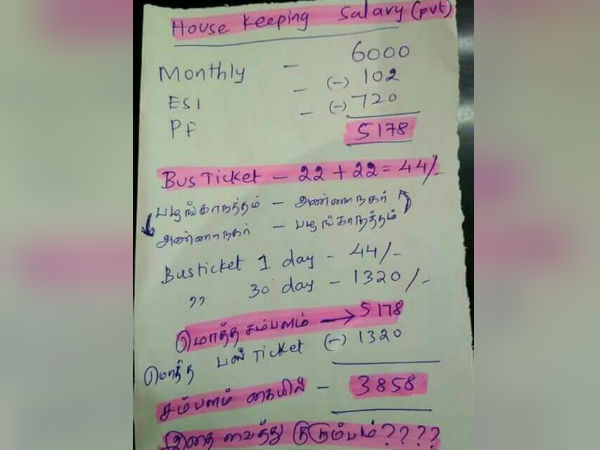 House Keeping Salary (pvt)
Monthly - 6000
ESI - (-) 102
PF - (-) 720
5178
Bus Ticket - 22 + 22 = 44/-
பழங்காநத்தம் - அண்ணாநகர்
அண்ணாநகர் - பழங்காநத்தம்
Busticket 1 day - 44/-
" 30 day - 1320/-
மொத்த சம்பளம் → 5178
மொத்த பஸ் Ticket (-) 1320
சம்பளம் கையில் - 3858
இதை வைத்து குடும்பம்????